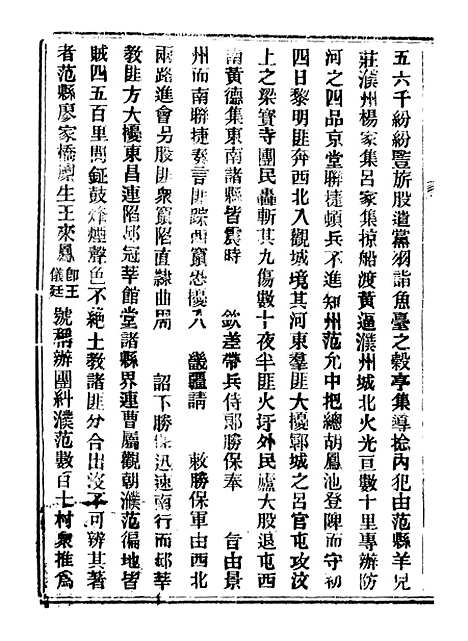 五六千紛紛豎旂股遣黨羽詣魚臺之穀亭集導捻內犯由范縣羊兒
莊濮州楊家集呂家集掠船渡黃逼濮州城北火光亘數十里專辦防
河之四品京堂聯捷頓兵不進知州范允中把總胡鳳池登陴而守初
四日黎明匪奔西北入觀城境其河東羣匪大擾鄆城之呂官屯攻汶
上之梁寶寺團民轟斬其九傷數十夜半匪火圩外民廬大股退屯西
南黃德集東南諸縣皆震時 欽差帶兵侍郎勝保奉 旨由景
州而南聯捷奏言匪蹤西竄恐擾入 畿疆請 敕勝保軍由西北
兩路進會另股匪衆竄陷直隸曲周 詔下勝保迅速南行而邱莘
教匪方大擾東昌連陷邱冠莘館堂諸縣界連曹屬觀朝濮范徧地皆
賊四五百里間鉦鼓烽煙聲色不絶土教諸匪分合出沒不可辨其著
者范縣廖家橋廩生王來鳳卽王儀廷號稱辦團糾濮范數百十村衆推爲